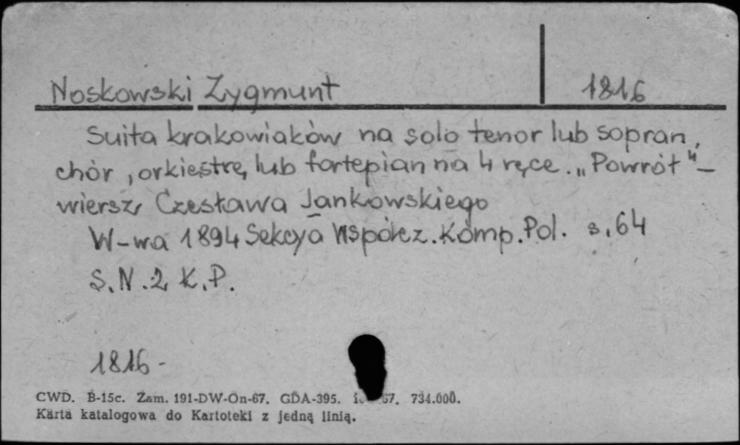 Noskowski Zygmunt 1816
Suita krakowiaków na solo tenor lub sopran,
chór, orkiestrę, lub fortepian na 4 ręce. „Powrót" –
wiersz, Czesława Jankowskiego
W-wa 1894 Sekcya Współcz. Komp. Pol. s. 64
S. N. 2 K. P.
1816 -
CWD. B-15c. Zam. 191-DW-On-67. GDA-395. 67. 734.000.
Karta katalogowa do Kartoteki z jedną linią.